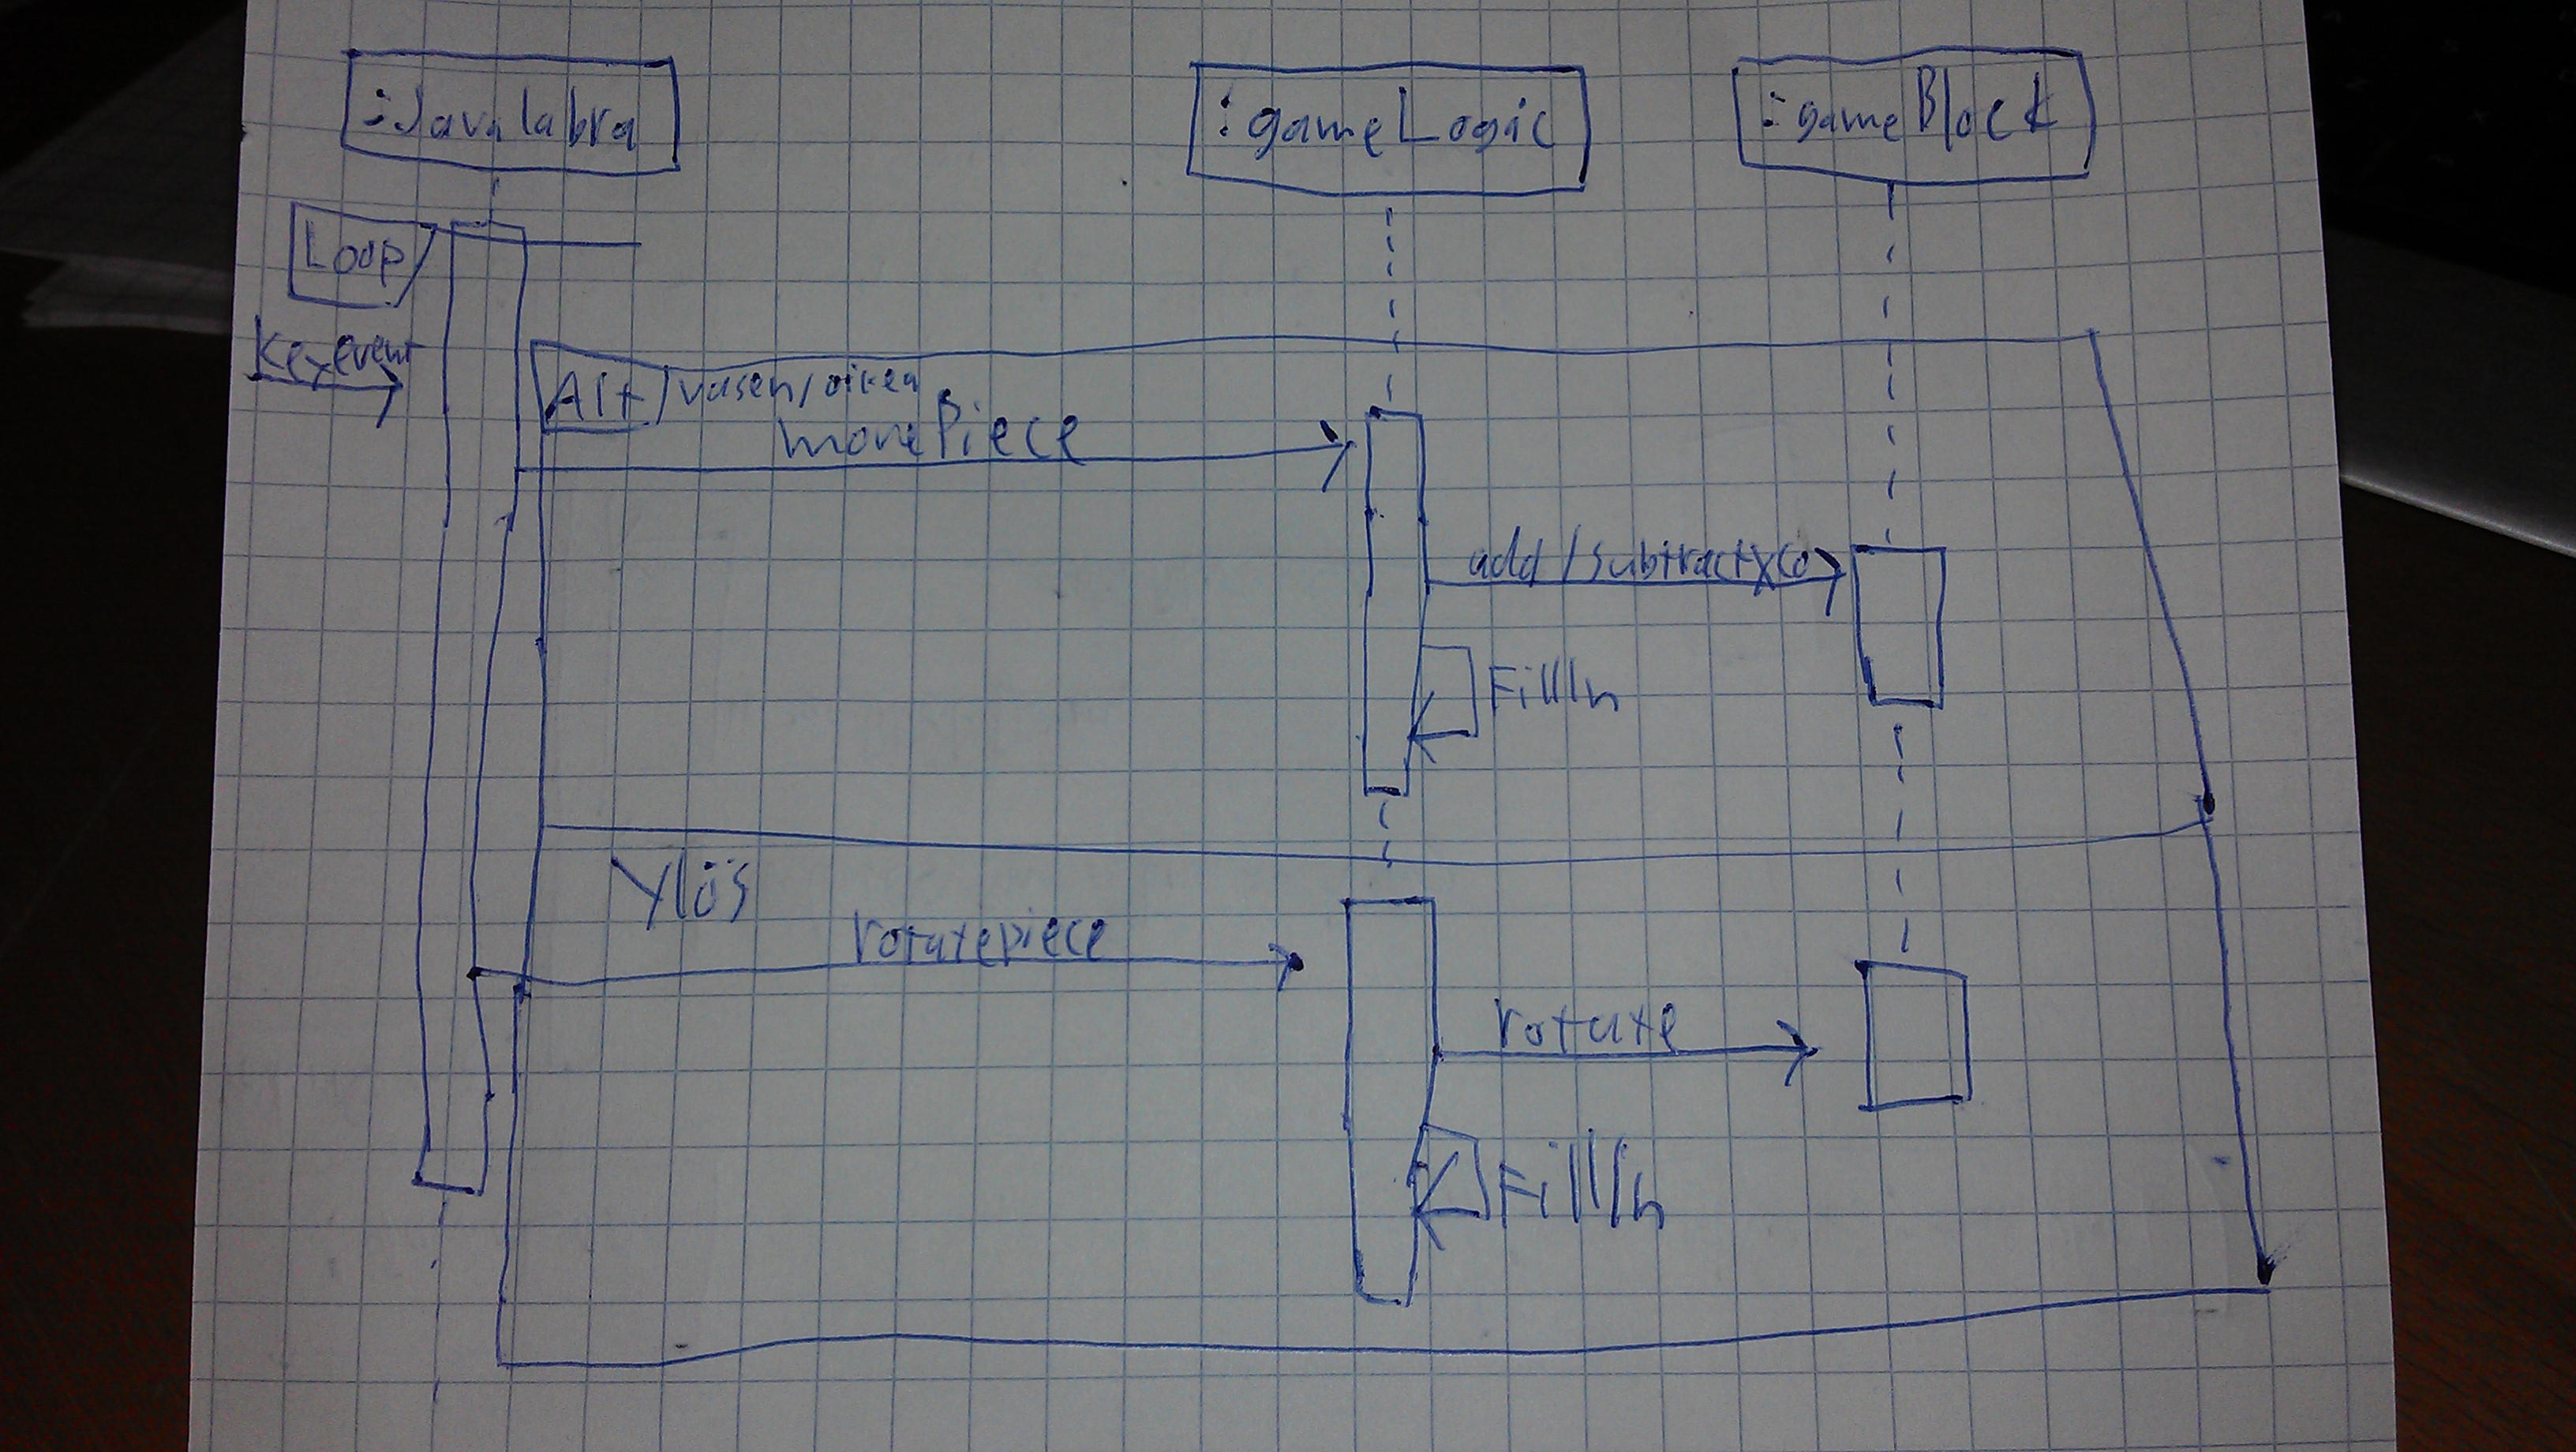 :Javalabra
:gameLogic
:gameBlock
Loop
Keyevent
Alt
vasen/oikea
movePiece
add/subtractXCo
FillIn
Ylös
rotatepiece
rotate
FillIn